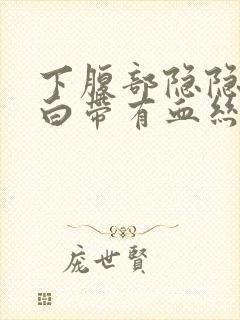 下腹部隐隐
白带有血丝
庞世賢